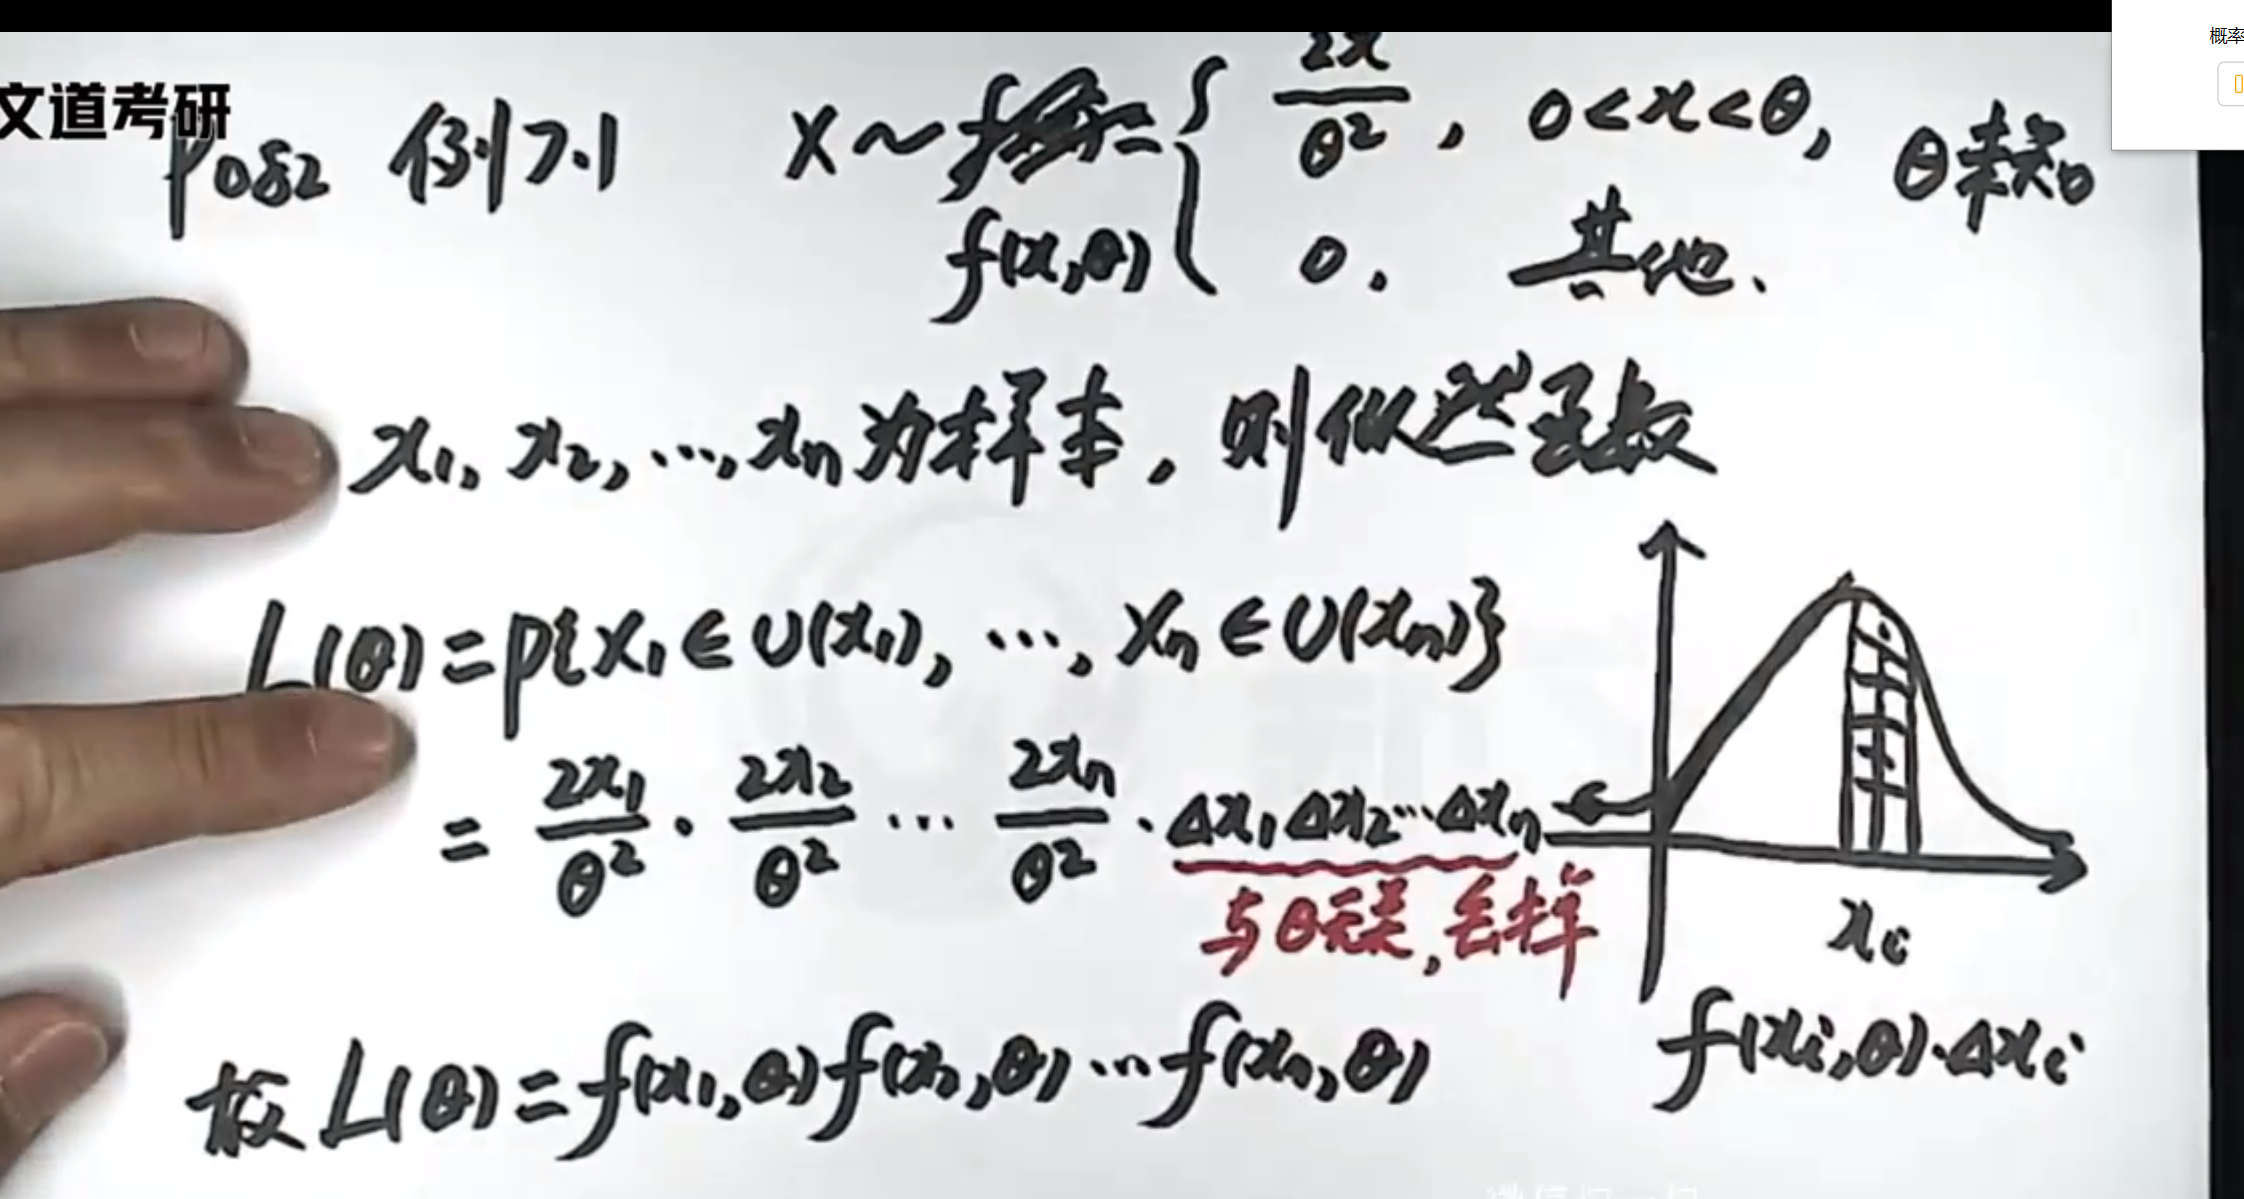 概率
文道考研
P082 例7.1 X~f(x,θ){ 2x/θ², 0<x<θ, θ未知
0, 其他.
x₁, x₂, …, xₙ为样本, 则似然函数
L(θ)=P{X₁∈U(x₁), …, Xₙ∈U(xₙ)}
= 2x₁/θ² · 2x₂/θ² … 2xₙ/θ² · Δx₁Δx₂…Δxₙ
与θ无关, 丢掉
xᵢ
f(xᵢ,θ)·Δxᵢ
故 L(θ)=f(x₁,θ)f(x₂,θ)…f(xₙ,θ)